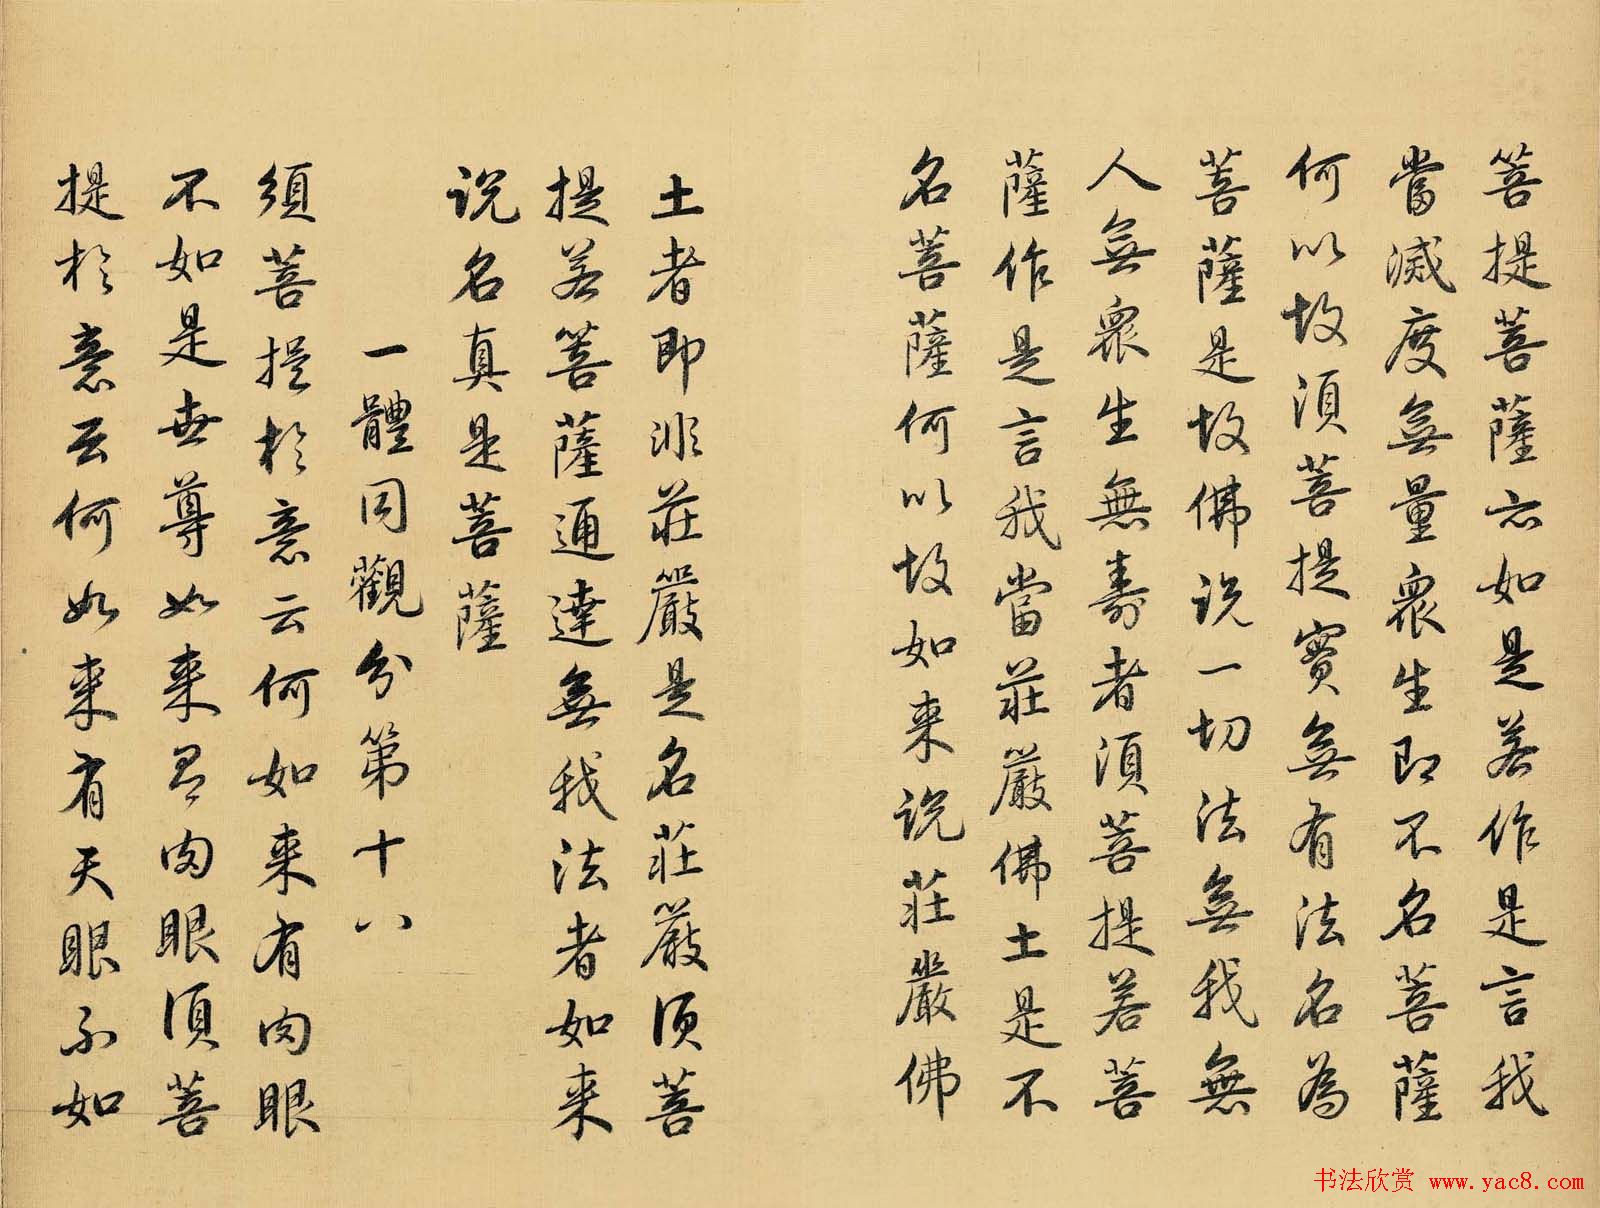 菩提菩薩亦如是若作是言我
當滅度無量眾生即不名菩薩
何以故須菩提實無有法名為
菩薩是故佛說一切法無我無
人無眾生無壽者須菩提若菩
薩作是言我當莊嚴佛土是不
名菩薩何以故如来說莊嚴佛
土者即非莊嚴是名莊嚴須菩
提若菩薩通達無我法者如来
說名真是菩薩
一體同觀分第十八
須菩提於意云何如来有肉眼
不如是世尊如来有肉眼須菩
提於意云何如来有天眼不如
书法欣赏 www.yac8.com